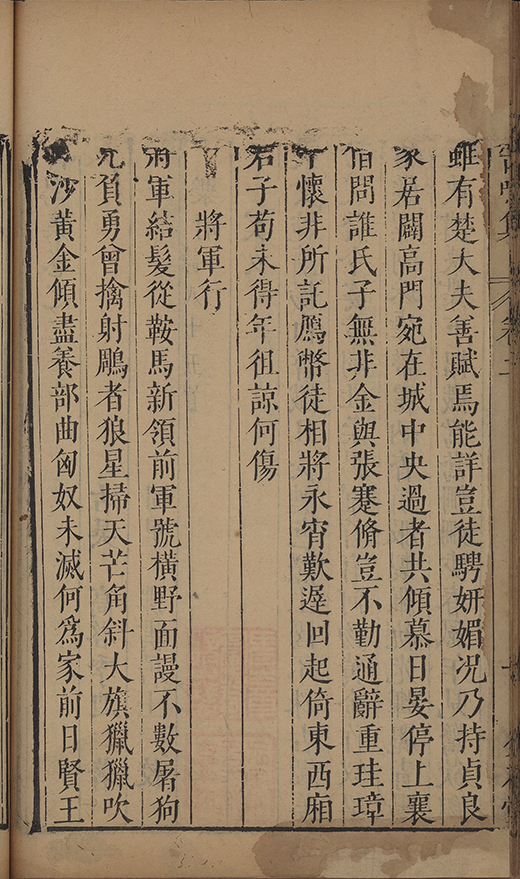 雖有楚大夫善賦焉能詳豈徒騁妍媚况乃持貞良
家居闢高門宛在城中央過者共傾慕日晏停上襄
借問誰氏子無非金與張蹇脩豈不勤通辭重珪璋
懷非所託鴈幣徒相將永宵歎遲回起倚東西廂
君子苟未得年徂諒何傷
將軍行
將軍結髮從鞍馬新領前軍號橫野面謾不數屠狗
負勇曾擒射鵰者狼星掃天芒角斜大旗獵獵吹
沙黃金傾盡養部曲匈奴未滅何爲家前日賢王